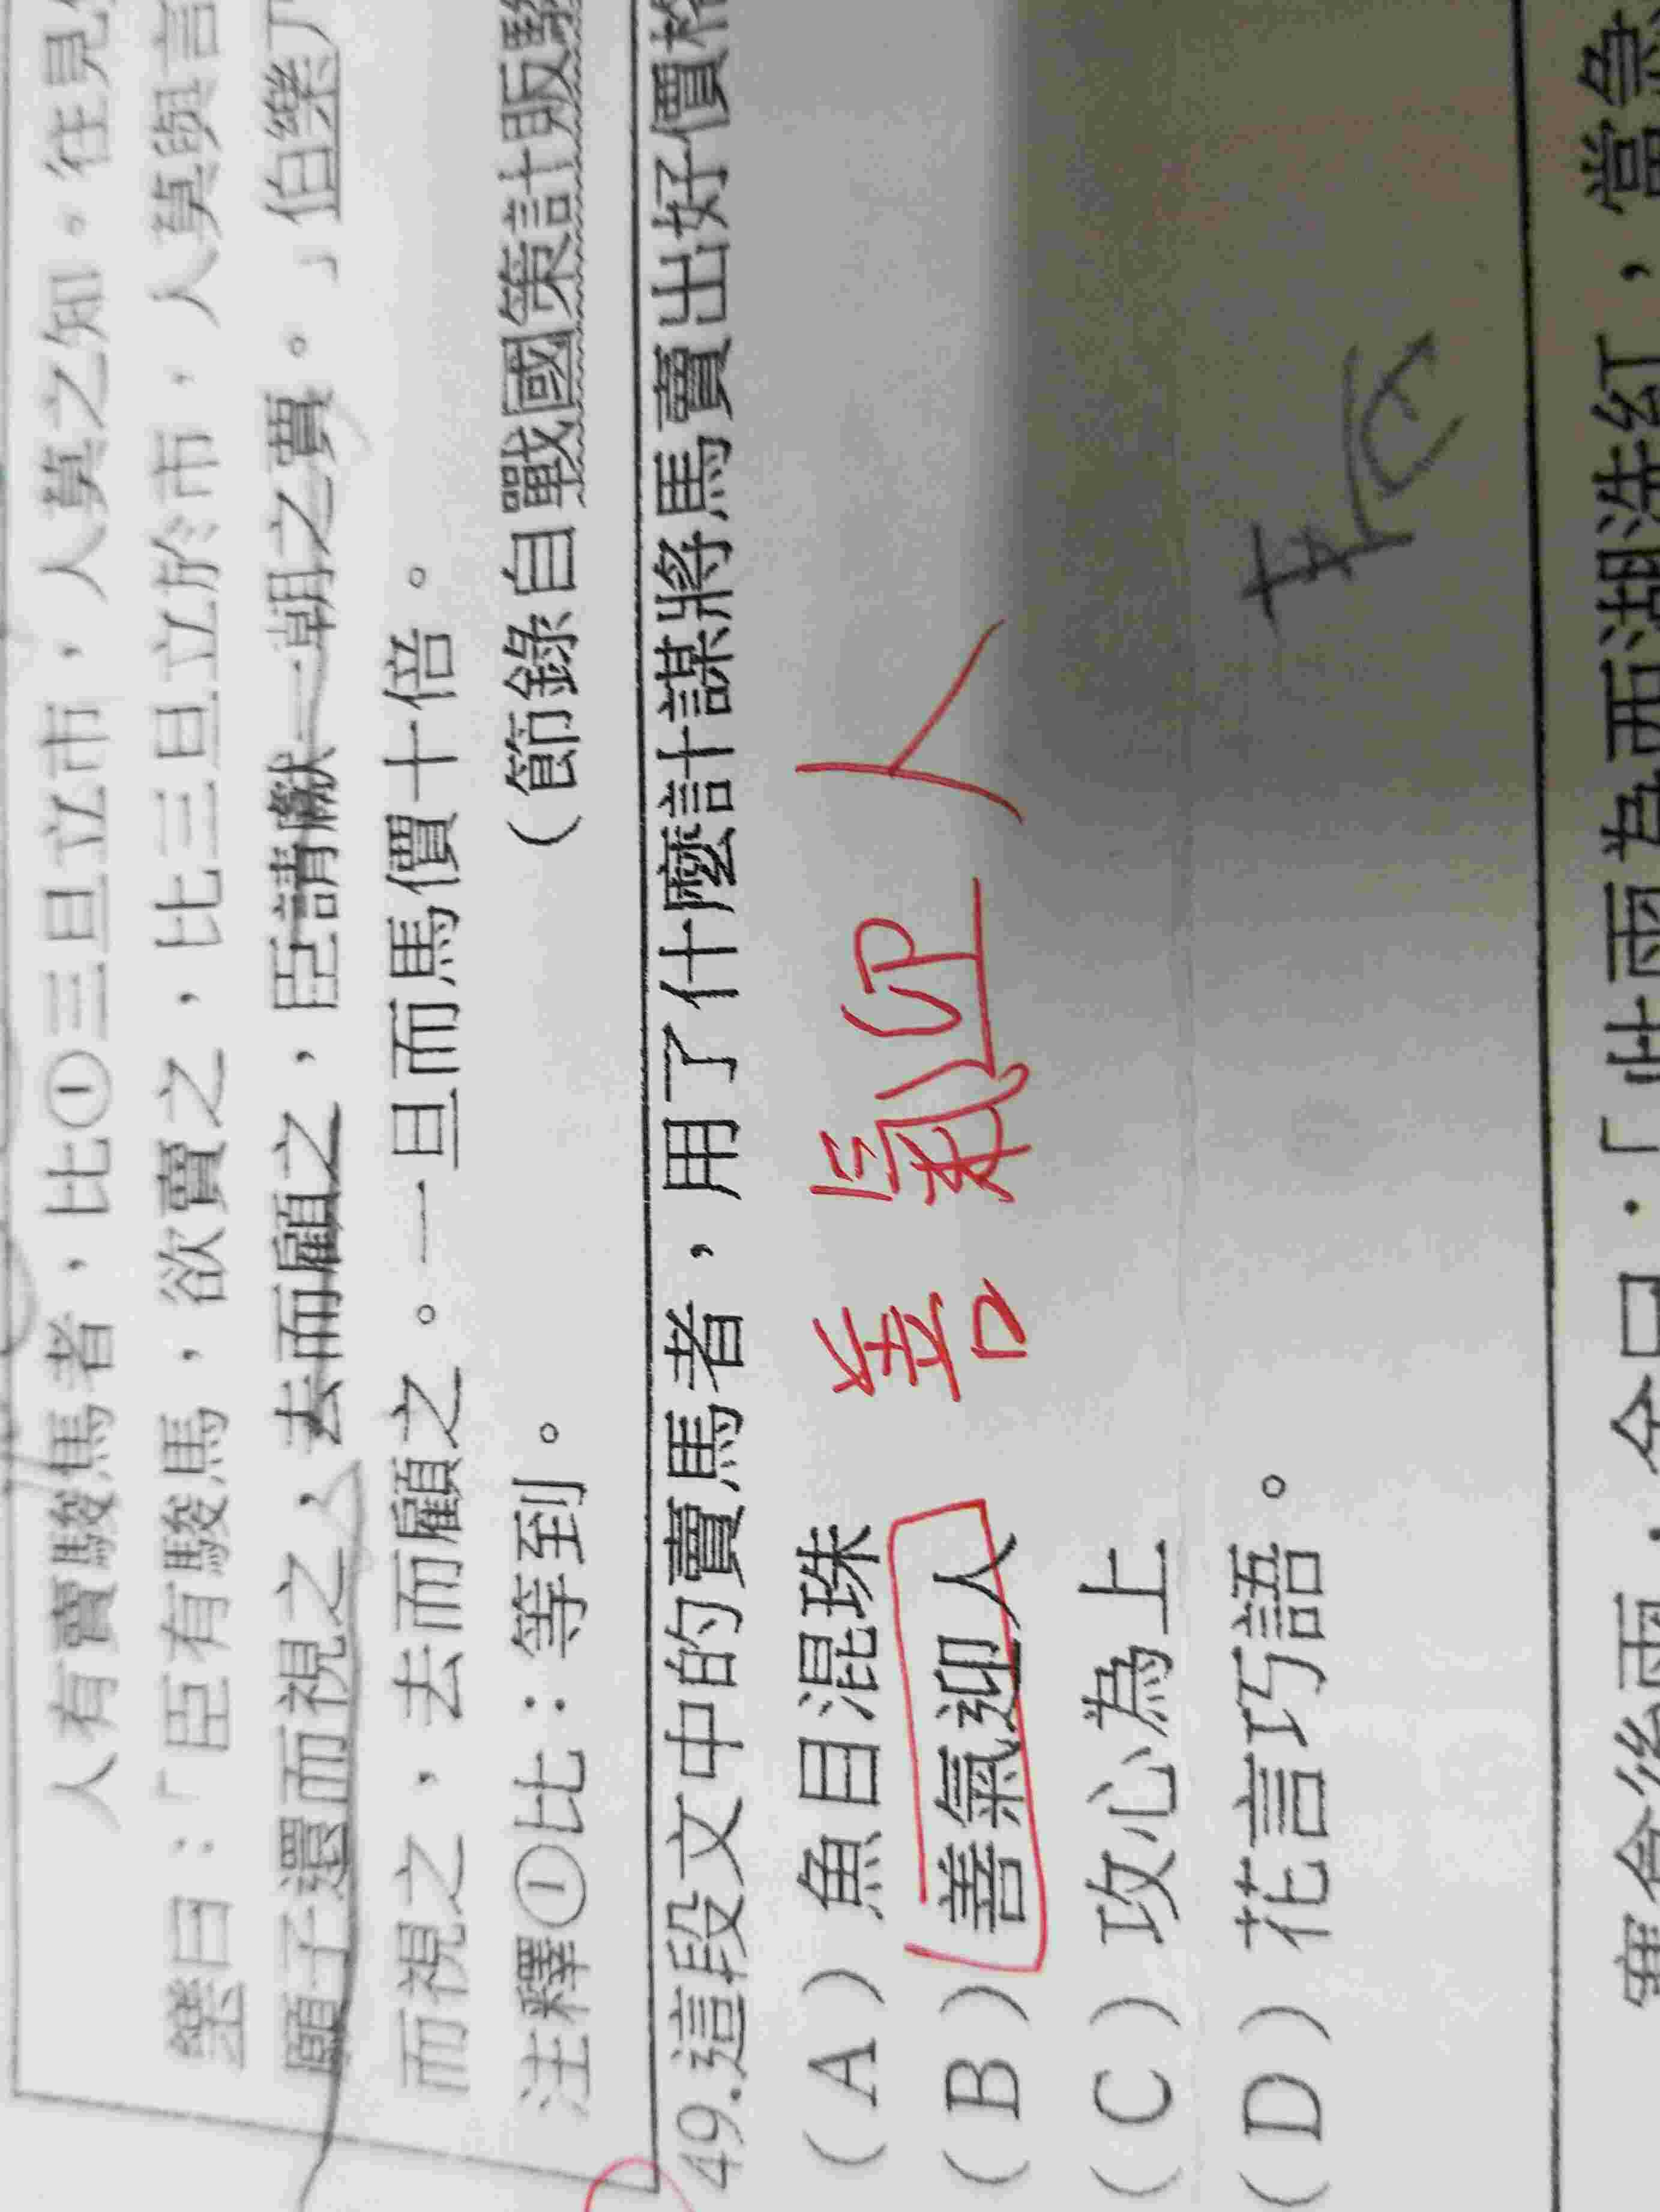 人有賣駿馬者，比①三旦立市，人莫之知。往見
樂曰：「臣有駿馬，欲賣之，比三旦立於市，人莫與言
願子還而視之，去而顧之，臣請獻一朝之賈。」伯樂乃
而視之，去而顧之。一旦而馬價十倍。
（節錄自戰國策計販
注釋①比：等到。
49.這段文中的賣馬者，用了什麼計謀將馬賣出好價格
（A）魚目混珠
（B）善氣迎人
善氣迎人
（C）攻心為上
（D）花言巧語。
寒食後雨，余曰：「此雨為西湖洗紅，當急